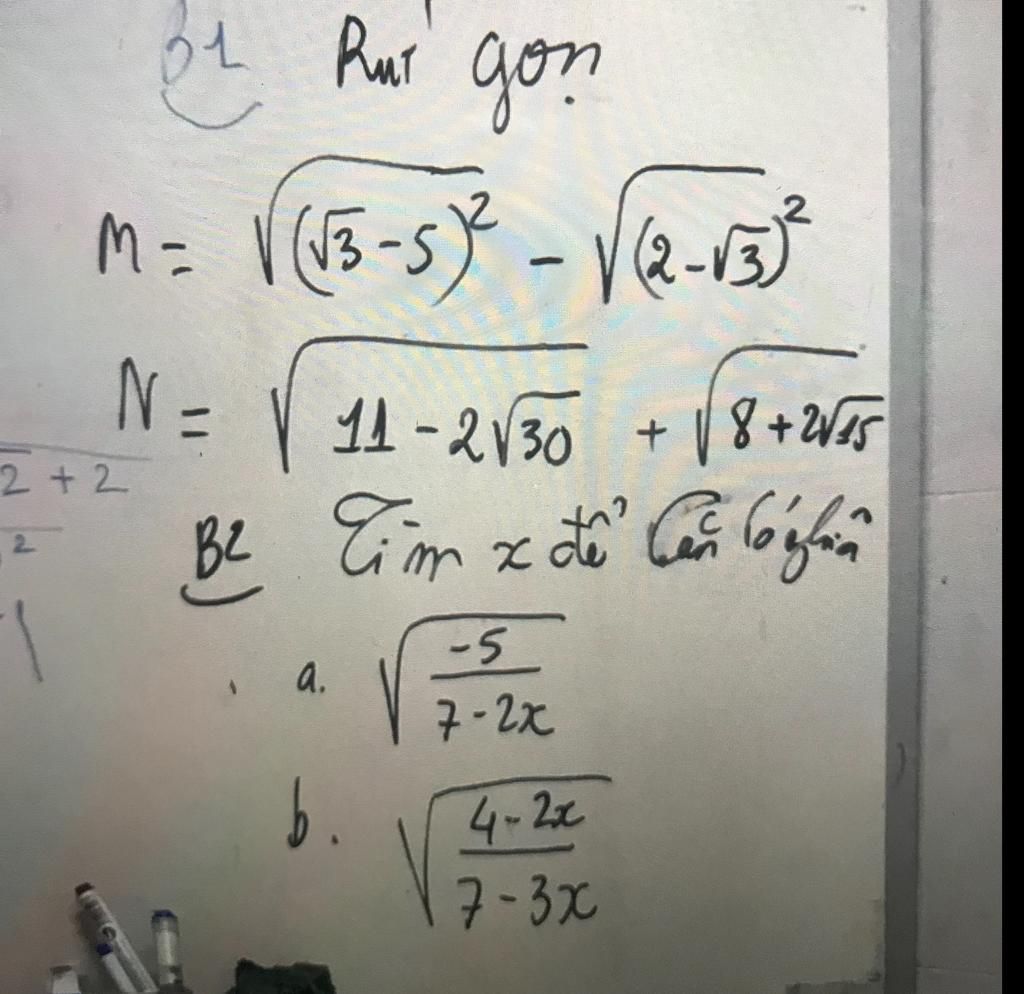 B1 Rút gọn
M = √(√3 - 5)² - √(2 - √3)²
N = √11 - 2√30 + √8 + 2√15
√2 + 2
2
B2 Tìm x để Căn có nghĩa
a. √-5/7 - 2x
b. √4 - 2x/7 - 3x